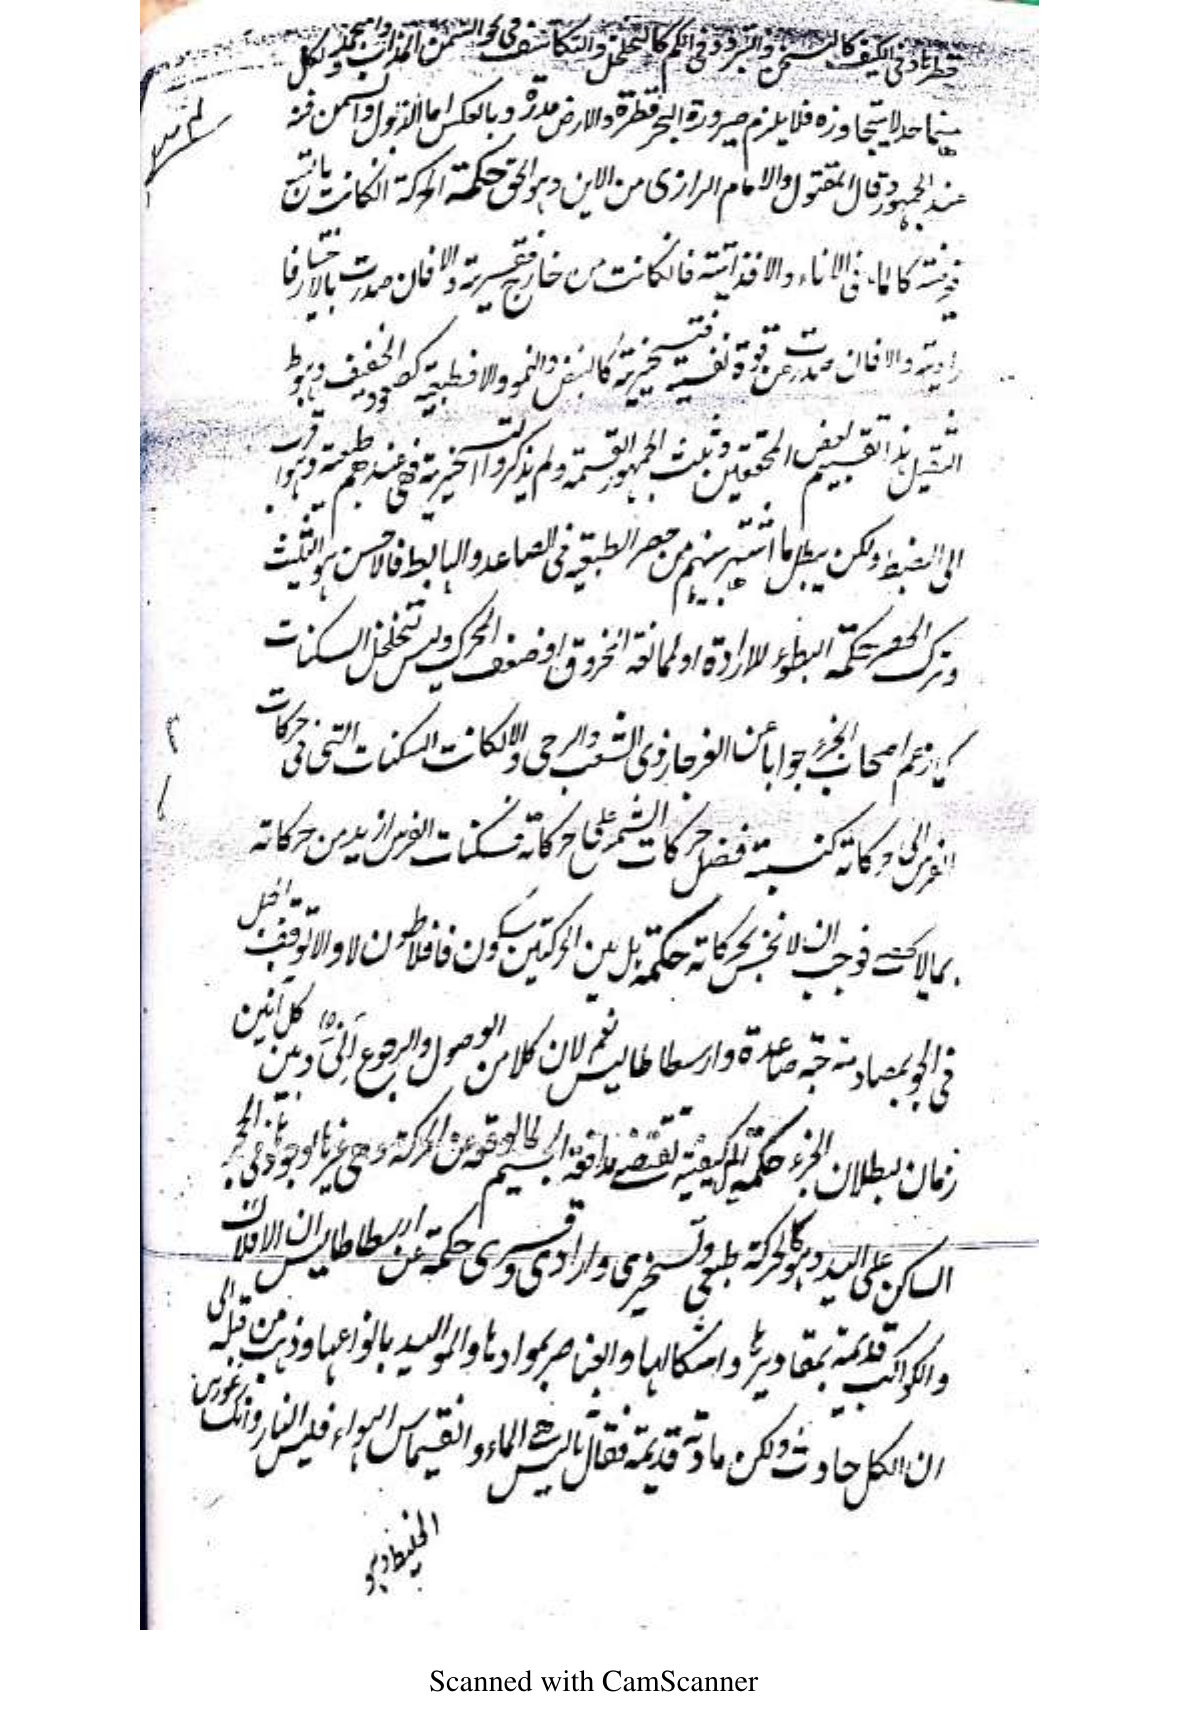 فى الكيف كالتسخن والتبرد وفى الكم كالتخلخل والتكاثف فى نحو السمن المذاب والمنجمد ولكل
منهما حد لا يتجاوزه فلا يلزم صيرورة البحر قطرة والارض مدرة وبالعكس اما الذبول والسمن فمنه
عند الجمهور وقال المقتول والامام الرازى من الاين وهو الحق حكمة الحركة انكانت
كالماء فى الاناء والا فذاتية فانكانت من خارج فقسرية والا فان صدرت بالاختيار فا
رادية والا فان صدرت عن قوة نفسية فتسخيرية كالنبض والنمو والا فطبعية كصعود الخفيف وهبوط
الثقيل هذا تقسيم بعض المحققين وثلث الجمهور القسمة ولم يذكروا التسخيرية فهى عندهم طبعية وهو اقرب
الى الضبط ولكن يبطل ما اشتهر منهم من حصر الطبعية فى الصاعد والهابط فالاحسن هو التثليث
وترك الحصر حكمة البطؤ للارادة او لممانعة المخروق او ضعف المحرك وليس لتخلخل السكنات
كما زعم اصحاب الجزء جوابا عن الفرجار ذى الشعب والرحى والا لكانت السكنات التى فى حركات
الفرس الى حركاته كنسبة فضل حركات الشمس على حركاته فسكنات الفرس ازيد من حركاته
بما لا يحصى فوجب ان لا نحس بحركاته حكمة هل بين الحركتين سكون فافلاطون لا والا لتوقف الجبل
فى الجو بمصادمة حبة صاعدة وارسطاطاليس نعم لان كلا من الوصول والرجوع آنى وبين كل آنين
١٥
زمان لبطلان الجزء حكمة الميل كيفية تقتضى مدافعة الجسم لما يعوقه عن الحركة وهى غيرها لوجودها فى الحجر
الساكن على اليد وهو كالحركة طبعى وتسخيرى وارادى وقسرى حكمة عن ارسطاطاليس ان الافلاك
والكواكب قديمة بمقاديرها واشكالها والعناصر بموادها والمواليد بانواعها وذهب من قبله الى
ان الكل حادث ولكن مادته قديمة فقال ثاليس هى الماء وانقسيماس الهواء